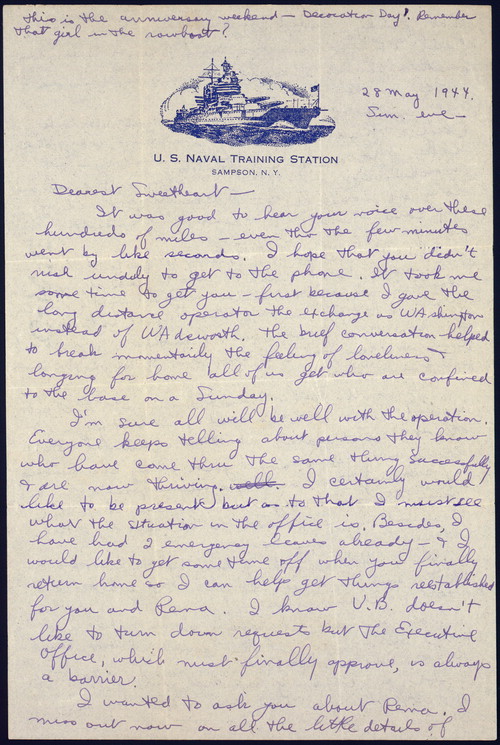 This is the anniversary weekend – Decoration Day! Remember
that girl in the rowboat?
28 May 1944.
Sun. eve –
U. S. NAVAL TRAINING STATION
SAMPSON, N. Y.
Dearest Sweetheart –
It was good to hear your voice over these
hundreds of miles – even tho the few minutes
went by like seconds. I hope that you didn't
risk unduly to get to the phone. It took me
some time to get you – first because I gave the
long distance operator the exchange as WAshington
instead of WAdsworth. The brief conversation helped
to break momentarily the feeling of loneliness &
longing for home all of us get who are confined
to the base on a Sunday.
I'm sure all will be well with the operation.
Everyone keeps telling about persons they know
who have come thru the same thing successfully
& are now thriving. I certainly would
like to be present, but as to that I must see
what the situation in the office is. Besides, I
have had 2 emergency leaves already – & I
would like to get some time off when you finally
return home so I can help get things reestablished
for you and Rena. I know V.B. doesn't
like to turn down requests but the Executive
Office, which must finally approve, is always
a barrier.
I wanted to ask you about Rena. I
miss out now on all the little details of